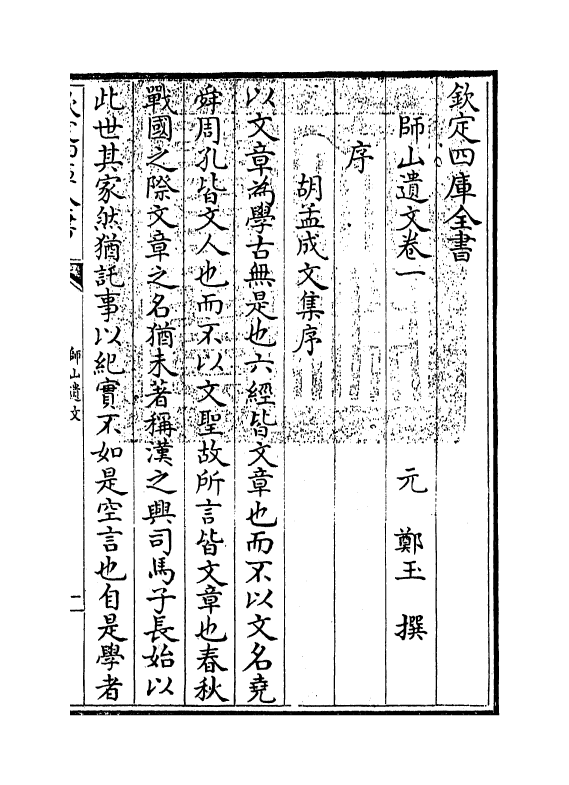 欽定四庫全書
師山遺文卷一　　　　元　鄭玉　撰
序
胡孟成文集序
以文章為學古無是也六經皆文章也而不以文名堯
舜周孔皆文人也而不以文聖故所言皆文章也春秋
戰國之際文章之名猶未著稱漢之興司馬子長始以
此世其家然猶託事以紀實不如是空言也自是學者
師山遺文
二